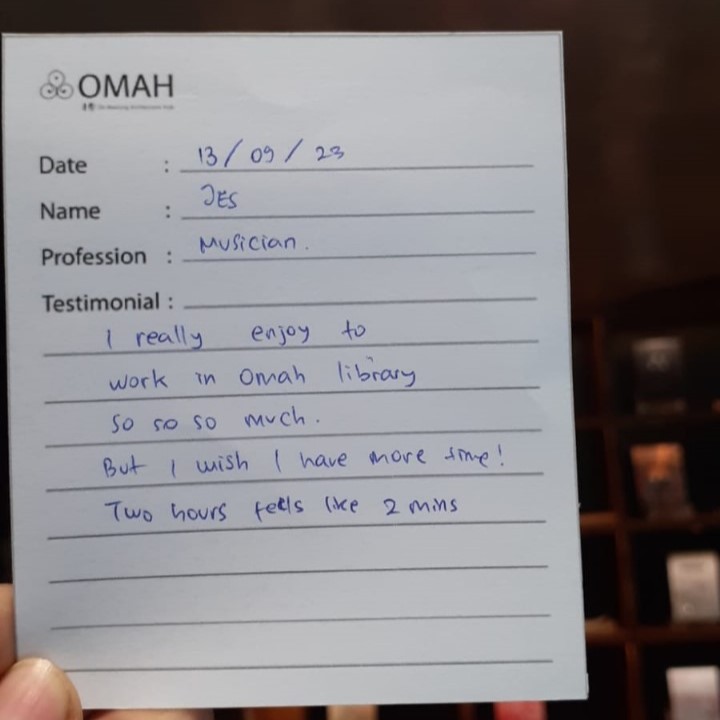 OMAH
Date : 13 / 09 / 23
Name : JES
Profession : Musician.
Testimonial :
I really enjoy to
work in Omah library
so so so much.
But I wish I have more time!
Two hours feels like 2 mins